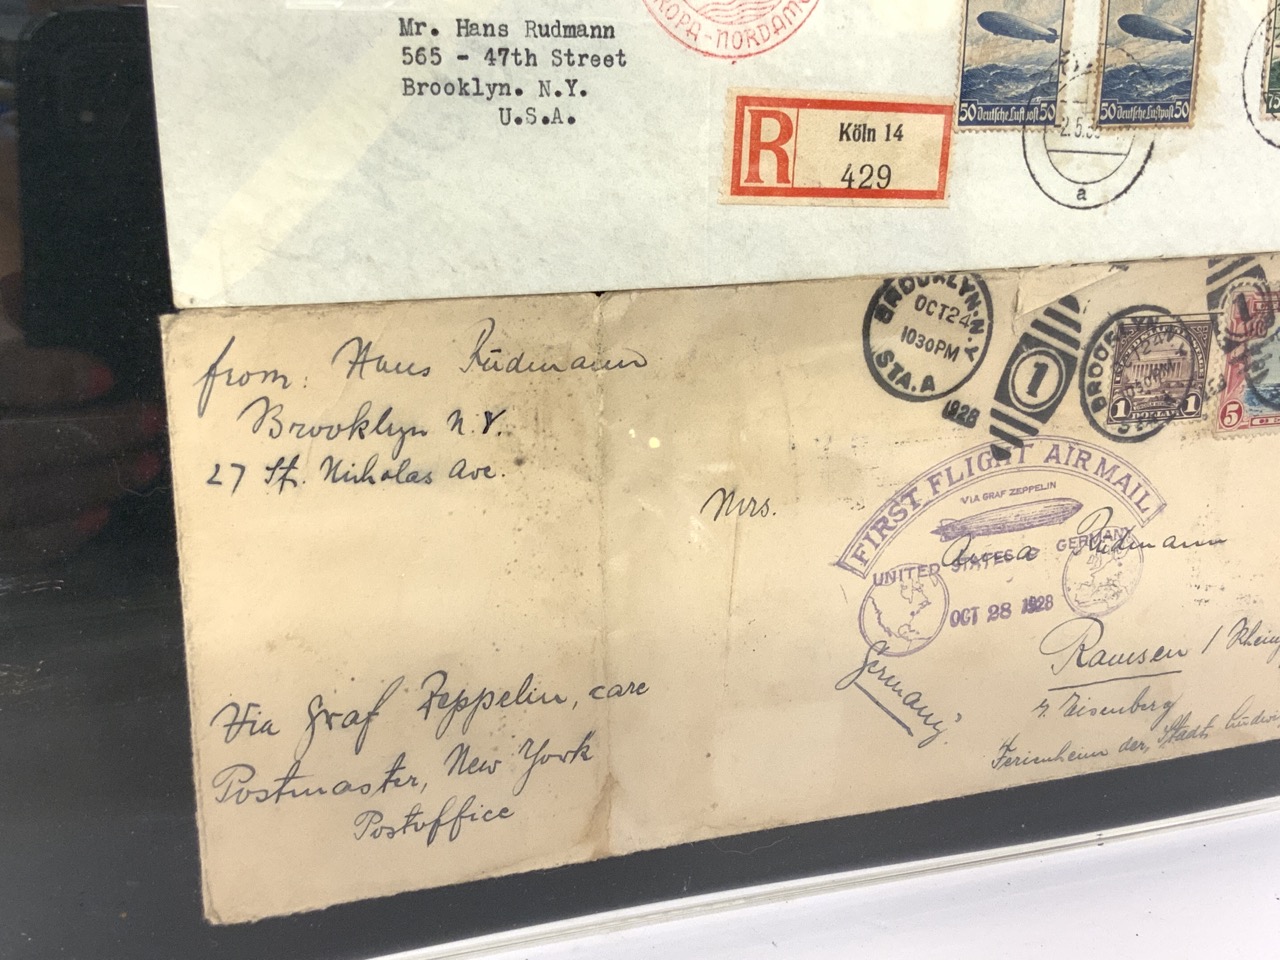 ROPA-NORDAM
Mr. Hans Rudmann
565 - 47th Street
Brooklyn. N.Y.
U.S.A.
R
Köln 14
429
50 Deutsche Luftpost 50
50 Deutsche Luftpost 50
2.5.36
a
from: Hans Rüdmann
Brooklyn N.Y.
27 St. Nicholas Ave.
Via Graf Zeppelin, care
Postmaster, New York
Postoffice
BROOKLYN. N.Y.
OCT 24
1030 PM
STA. A
1928
1
BROOKLYN
1 DOLLAR 1
5
FIRST FLIGHT AIR MAIL
VIA GRAF ZEPPELIN
UNITED STATES GERMANY
OCT 28 1928
Mrs.
Anna Rüdmann
Ramsen / Rhein
Germany.
Eisenberg
Ferienheim der Stadt Ludwi